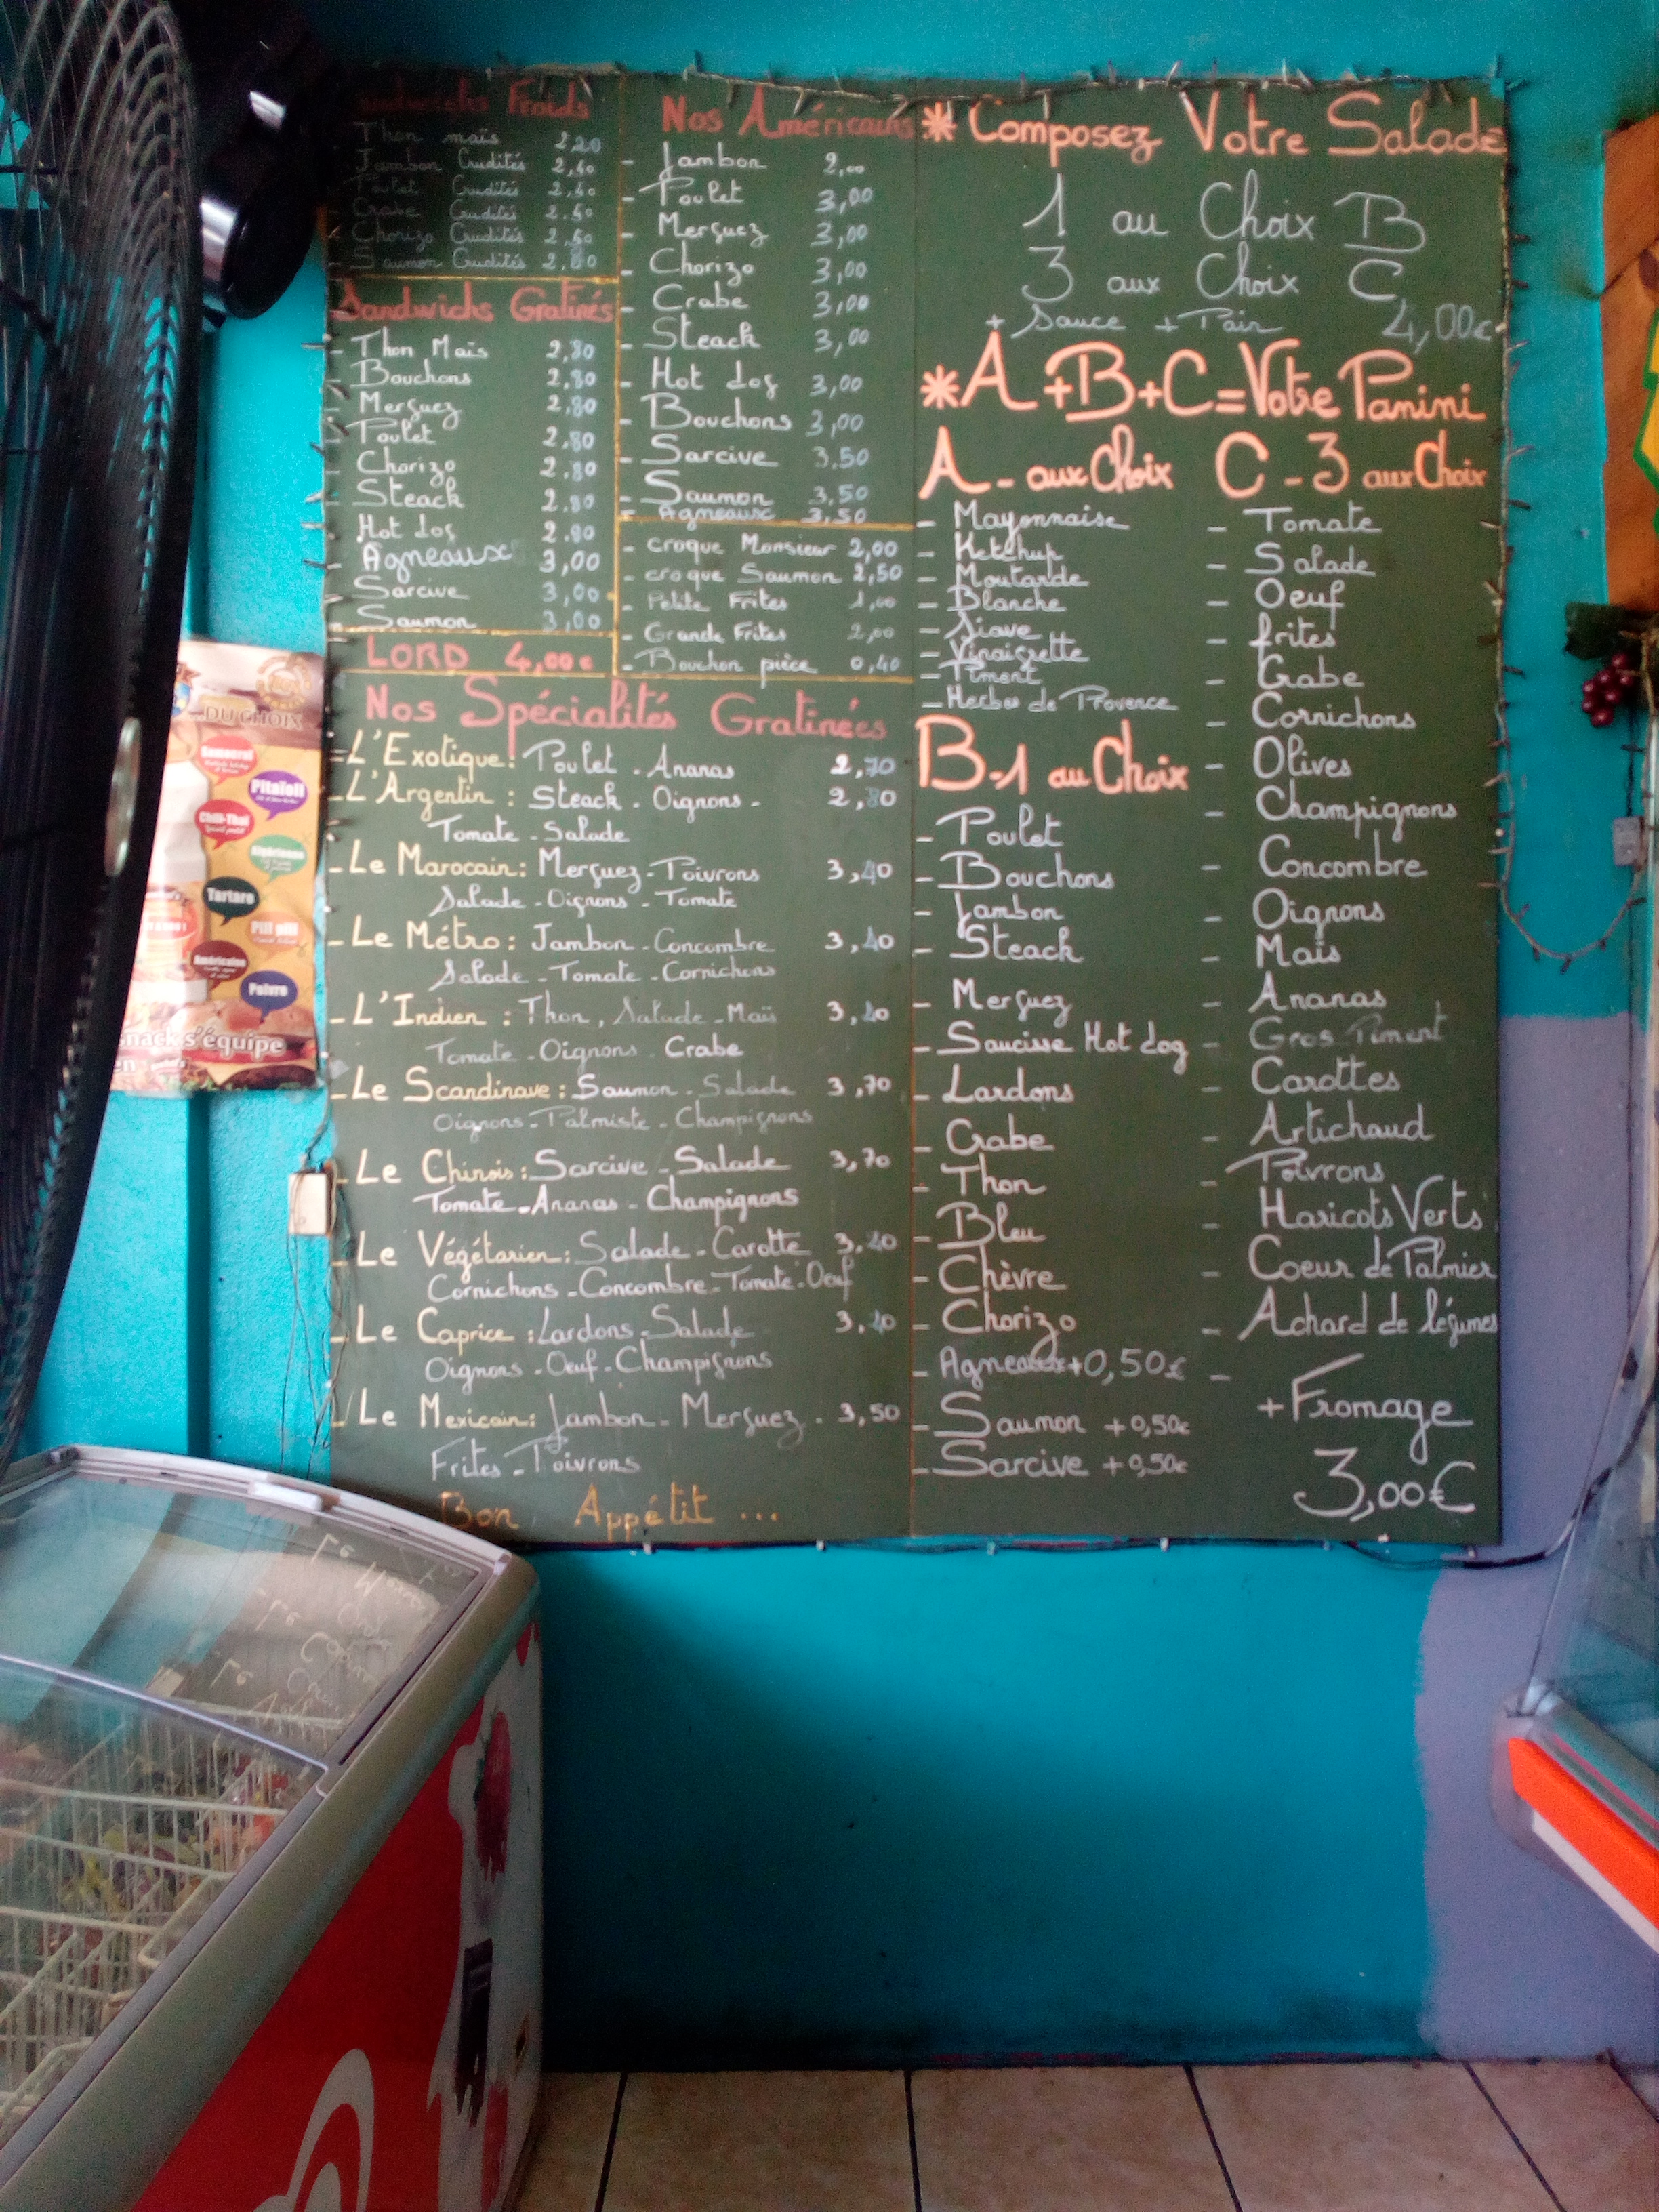 Froids
Thon maïs 2,20
Jambon Crudités 2,40
Poulet Crudités 2,40
Crabe Crudités 2,60
Chorizo Crudités 2,60
Saumon Crudités 2,80
Sandwichs Gratinés
- Thon Maïs 2,80
- Bouchons 2,80
- Merguez 2,80
- Poulet 2,80
- Chorizo 2,80
- Steack 2,80
- Hot dog 2,80
- Agneaux 3,00
- Sarcive 3,00
- Saumon 3,00
LORD 4,00€
Nos Américains
- Jambon 2,00
- Poulet 3,00
- Merguez 3,00
- Chorizo 3,00
- Crabe 3,00
- Steack 3,00
- Hot dog 3,00
- Bouchons 3,00
- Sarcive 3.50
- Saumon 3,50
- Agneaux 3,50
- croque Monsieur 2,00
- croque Saumon 2,50
- Petite Frites 1,00
- Grande Frites 2,00
- Bouchon pièce 0,40
Nos Spécialités Gratinées
- L'Exotique: Poulet - Ananas 2,70
- L'Argentin : Steack - Oignons - 2,80
Tomate - Salade
- Le Marocain: Merguez - Poivrons 3,40
Salade - Oignons - Tomate
- Le Métro: Jambon - Concombre 3,40
Salade - Tomate - Cornichons
- L'Indien : Thon, Salade - Maïs
Tomate - Oignons - Crabe
- Le Scandinave: Saumon - Salade 3,70
Oignons - Palmiste - Champignons
- Le Chinois: Sarcive - Salade 3,70
Tomate - Ananas - Champignons
- Le Végétarien: Salade - Carotte
Cornichons - Concombre - Tomate - Oeuf
- Le Caprice : Lardons - Salade
Oignons - Oeuf - Champignons
- Le Mexicain: Jambon - Merguez - 3,50
Frites - Poivrons
Bon Appétit ...
* Composez Votre Salade
1 au Choix B
3 aux Choix C
+ Sauce + Pain 4,00€
* A+B+C=Votre Panini
A - aux Choix
- Mayonnaise
- Ketchup
- Moutarde
- Blanche
- Siave
- Vinaigrette
- Piment
- Herbes de Provence
B-1 au Choix
- Poulet
- Bouchons
- Jambon
- Steack
- Merguez
- Saucisse Hot dog
- Lardons
- Crabe
- Thon
- Bleu
- Chèvre
- Chorizo
- Agneaux+0,50€
- Saumon +0,50€
- Sarcive +0,50€
C - 3 aux Choix
- Tomate
- Salade
- Oeuf
- frites
- Crabe
- Cornichons
- Olives
- Champignons
- Concombre
- Oignons
- Maïs
- Ananas
- Gros Piment
- Carottes
- Artichaud
- Poivrons
- Haricots Verts
- Coeur de Palmier
- Achard de légumes
-
+Fromage
3,00€
DU CHOIX
Samouraï
Pitaïoli
Chili-Thaï
Algérienne
Tartare
Pili pili
Américaine
Poivre
snack s'équipe